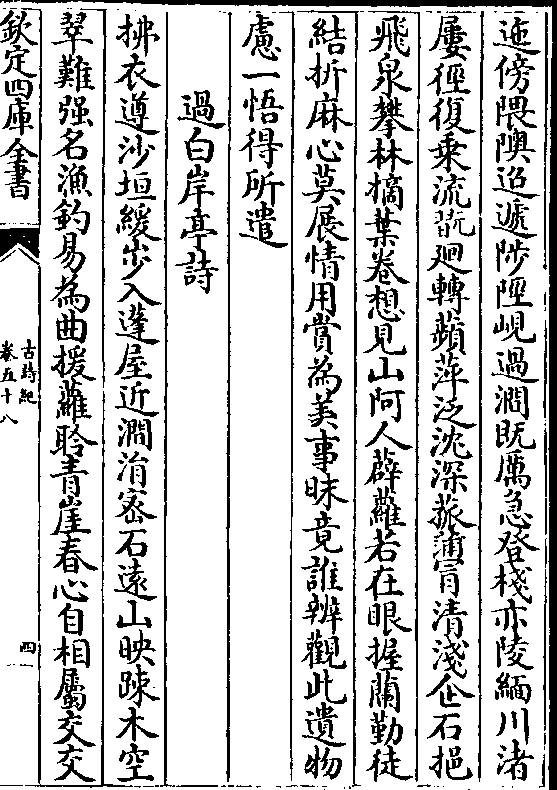 迤傍隈隩迢遞陟陘峴過澗既厲急登棧亦陵緬川渚
屢徑復乘流翫廻轉蘋萍泛沈深菰蒲冒清淺企石挹
飛泉攀林摘葉卷想見山阿人薜蘿若在眼握蘭勤徒
結折麻心莫展情用賞為美事昧竟誰辨觀此遺物
慮一悟得所遣
過白岸亭詩
拂衣遵沙垣緩步入蓬屋近澗涓密石遠山映疎木空
翠難强名漁釣易為曲援蘿聆青崖春心自相屬交交
欽定四庫全書
古詩紀
卷五十八
四